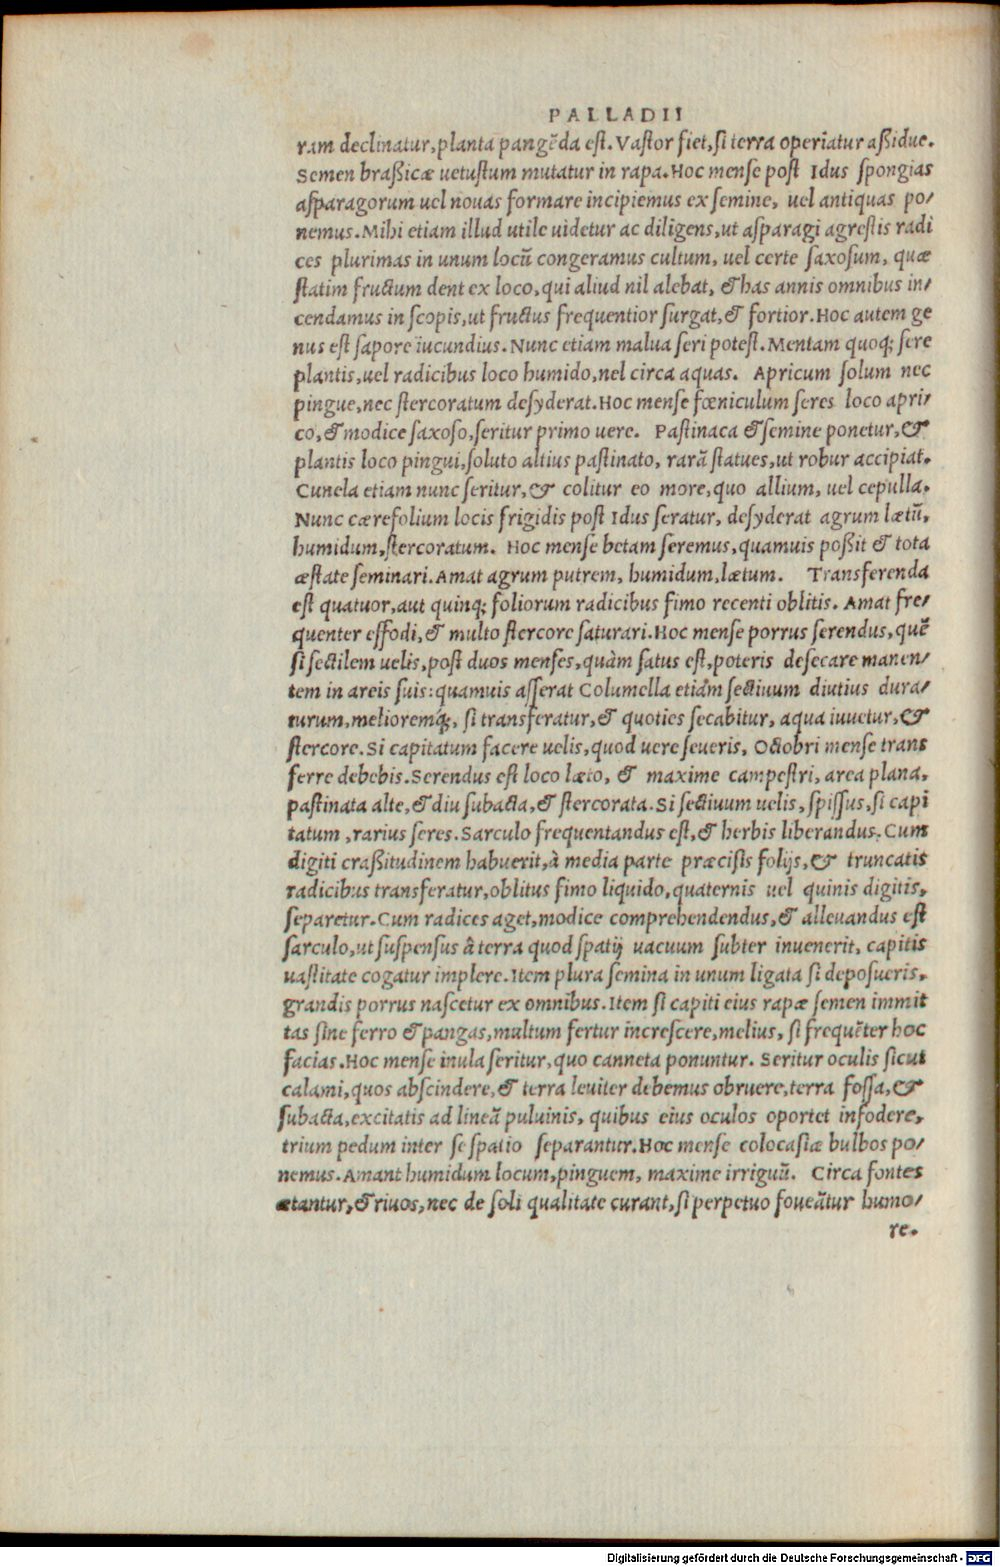 PALLADII
ram declinatur, planta pangẽda est. Vastor fiet, si terra operiatur aßidue.
Semen braßicæ uetustum mutatur in rapa. Hoc mense post Idus spongias
asparagorum uel nouas formare incipiemus ex semine, uel antiquas po/
nemus. Mihi etiam illud utile uidetur ac diligens, ut asparagi agrestis radi
ces plurimas in unum locũ congeramus cultum, uel certe saxosum, quæ
statim fructum dent ex loco, qui aliud nil alebat, & has annis omnibus in/
cendamus in scopis, ut fructus frequentior surgat, & fortior. Hoc autem ge
nus est sapore iucundius. Nunc etiam malua seri potest. Mentam quoq; sere
plantis, uel radicibus loco humido, nel circa aquas. Apricum solum nec
pingue, nec stercoratum desyderat. Hoc mense fœniculum seres loco apri/
co, & modice saxoso, seritur primo uere. Pastinaca & semine ponetur, &
plantis loco pingui, soluto altius pastinato, rarã statues, ut robur accipiat.
Cunela etiam nunc seritur, & colitur eo more, quo allium, uel cepulla.
Nunc cærefolium locis frigidis post Idus seratur, desyderat agrum lætũ,
humidum, stercoratum. Hoc mense betam seremus, quamuis poßit & tota
æstate seminari. Amat agrum putrem, humidum, lætum. Transferenda
est quatuor, aut quinq; foliorum radicibus fimo recenti oblitis. Amat fre/
quenter effodi, & multo stercore saturari. Hoc mense porrus serendus, quẽ
si sectilem uelis, post duos menses, quàm satus est, poteris desecare manen/
tem in areis suis: quamuis asserat Columella etiam sectiuum diutius dura/
turum, melioremq́;, si transferatur, & quoties secabitur, aqua iuuetur, &
stercore. Si capitatum facere uelis, quod uere seueris, Octobri mense trans
ferre debebis. Serendus est loco læto, & maxime campestri, area plana,
pastinata alte, & diu subacta, & stercorata. Si sectiuum uelis, spissus, si capi
tatum, rarius seres. Sarculo frequentandus est, & herbis liberandus. Cum
digiti craßitudinem habuerit, à media parte præcisis folijs, & truncatis
radicibus transferatur, oblitus fimo liquido, quaternis uel quinis digitis,
separetur. Cum radices aget, modice comprehendendus, & alleuandus est
sarculo, ut suspensus à terra quod spatij uacuum subter inuenerit, capitis
uastitate cogatur implere. Item plura semina in unum ligata si deposueris,
grandis porrus nascetur ex omnibus. Item si capiti eius rapæ semen immit
tas sine ferro & pangas, multum fertur increscere, melius, si frequẽter hoc
facias. Hoc mense inula seritur, quo canneta ponuntur. Seritur oculis sicut
calami, quos abscindere, & terra leuiter debemus obruere, terra fossa, &
subacta, excitatis ad lineã puluinis, quibus eius oculos oportet infodere,
trium pedum inter se spatio separantur. Hoc mense colocasiæ bulbos po/
nemus. Amant humidum locum, pinguem, maxime irriguũ. Circa fontes
ætantur, & riuos, nec de soli qualitate curant, si perpetuo foueãtur humo/
re.
Digitalisierung gefördert durch die Deutsche Forschungsgemeinschaft - DFG